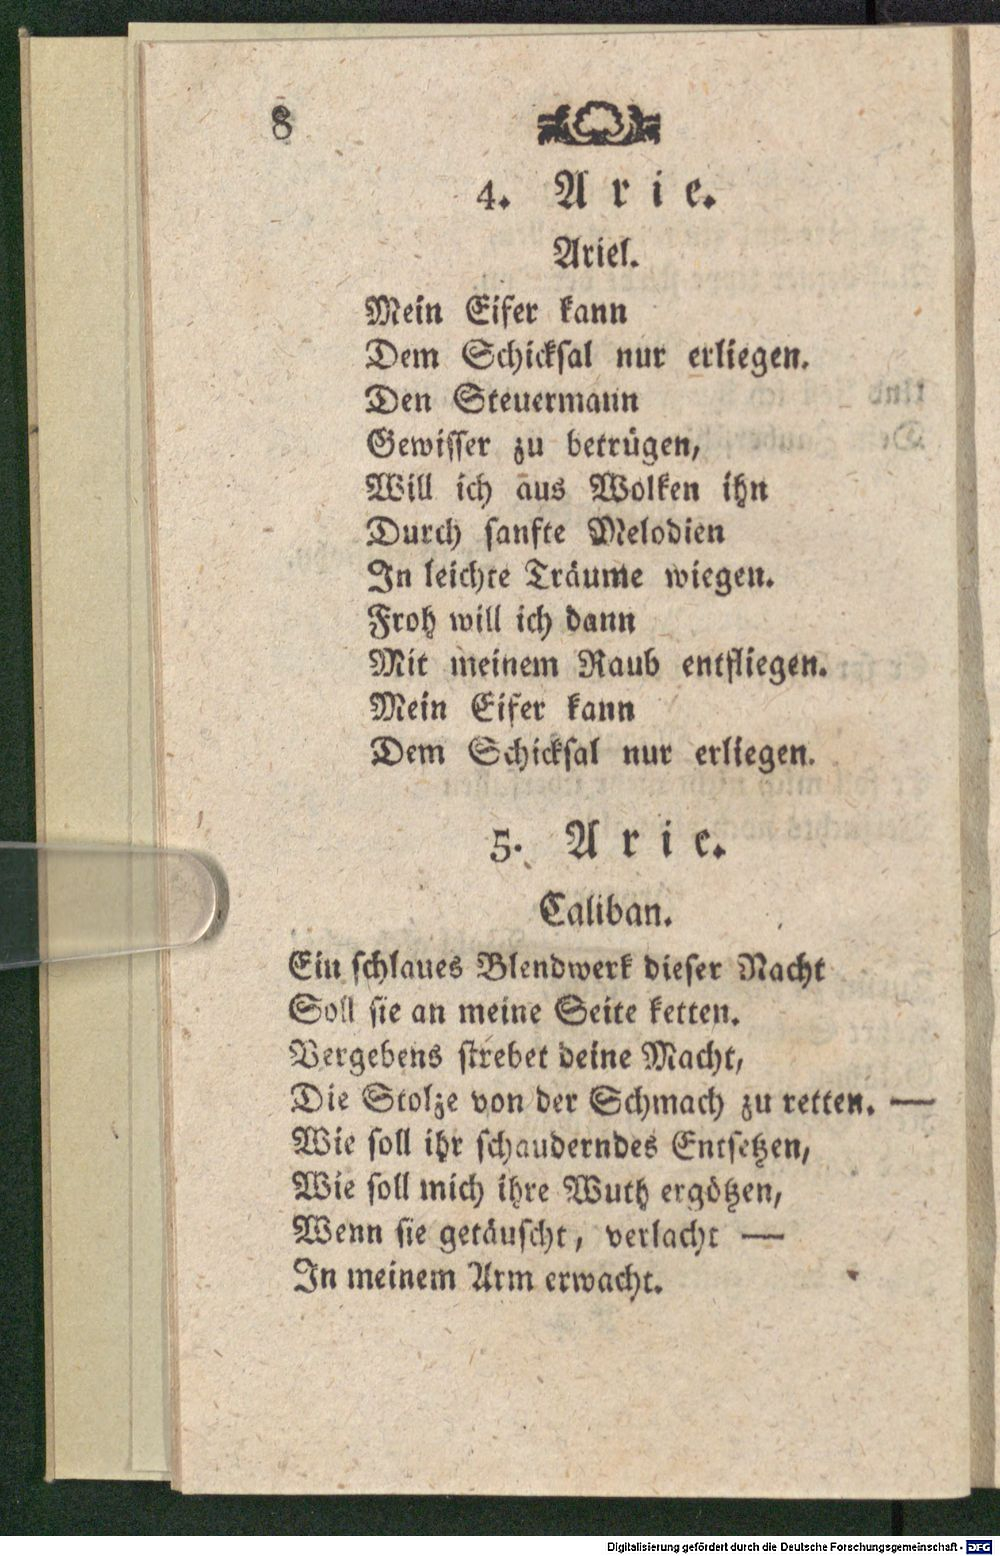 8
4. Arie.
Ariel.
Mein Eifer kann
Dem Schicksal nur erliegen.
Den Steuermann
Gewisser zu betrügen,
Will ich aus Wolken ihn
Durch sanfte Melodien
In leichte Träume wiegen.
Froh will ich dann
Mit meinem Raub entfliegen.
Mein Eifer kann
Dem Schicksal nur erliegen.
5. Arie.
Caliban.
Ein schlaues Blendwerk dieser Nacht
Soll sie an meine Seite ketten.
Vergebens strebet deine Macht,
Die Stolze von der Schmach zu retten. —
Wie soll ihr schauderndes Entsetzen,
Wie soll mich ihre Wuth ergötzen,
Wenn sie getäuscht, verlacht —
In meinem Arm erwacht.
Digitalisierung gefördert durch die Deutsche Forschungsgemeinschaft - DFG